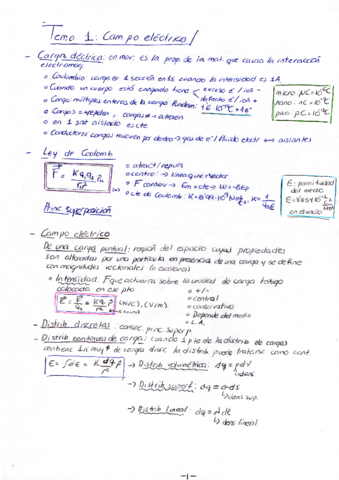 Tema 1: Campo eléctrico
- Carga eléctrica: en mov. es la prop. de la mat. que causa la interacción
electromag.
o Coulombio carga en 1 sección en 1s cuando la intensidad es 1A
o Cuando un cuerpo está cargado tiene exceso e⁻/ión -
defecto e⁻/ión +
o Carga múltiples enteros de la carga fundam:
o Cargas = repelen, cargas ≠ atraen
o en 1 sist aislado es cte
o Conductores cargas mueven por dentro → gas de e⁻/fluido eléctr ↔ aislantes
micro: μC = 10⁻⁶C
nano: nC = 10⁻⁹C
pico: pC = 10⁻¹²C
- Ley de Coulomb
o atract/repuls
o central:
o F conserv → Em = cte → W = -ΔEp
o cte de Coulomb:
Princ. superposición
E = permitividad
del medio
en el vacío
- Campo eléctrico
De una carga puntual: región del espacio cuyas propiedades
son alteradas por una partícula en presencia de una carga y se define
con magnitudes vectoriales (o escalares)
o Intensidad: F que actuaría sobre la unidad de carga testigo
colocada en ese pto
(N/C), (V/m)
o +/-
o central
o conservativo
o Depende del medio
o L.A.
- Distrib. discretas: consec. princ. superp.
- Distrib continuas de carga: cuando 1 pto de la distrib de cargas
contiene 1 nº muy ↑ de cargas discr la distrib puede tratarse como cont
→ Distrib volumétrica: dq = ρdV
→ dens
→ Distrib superf: dq = σds
→ dens sup.
→ Distrib lineal: dq = λdl
→ dens lineal
-1-